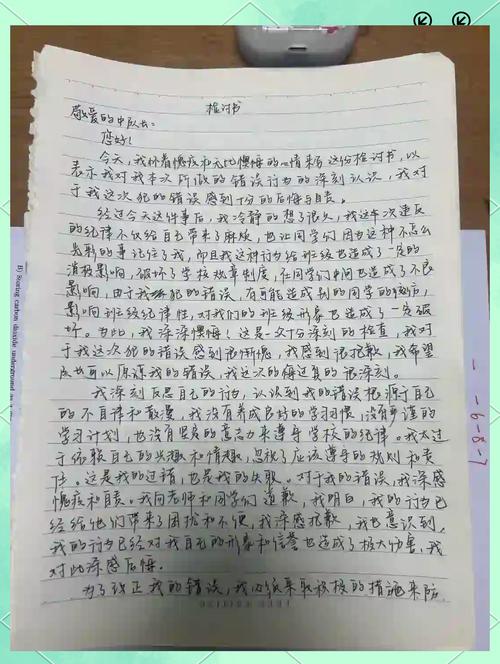 检讨书
敬爱的中队长:
您好!
今天,我怀着愧疚和无比懊悔的心情来写这份检讨书,以
表示我对我本次所做的错误行为的深刻认识,我对
于我这次犯的错误感到十分的后悔与自责。
经过今天这件事后,我冷静的想了很久,我这次违反
的纪律不仅给自己带来了麻烦,也让同学们因为这种不怎么
光彩的事记住了我,而且我这种行为给班级也造成了一定的
消极影响,破坏了学校规章制度,在同学们中间也造成了不良
影响,由于我犯的错误,有可能造成别的同学的效仿,
影响班级纪律性,对我们的班级形象也造成了一定破
坏。为此,我深深懊悔!这是一次十分深刻的检查,我对
于我这次犯的错误感到很惭愧,我感到很抱歉,我希望
可以原谅我的错误,我这次的悔过真的很深刻。
我深刻反思自己的行为,认识到我的错误根源于自己
的不自律和散漫,我没有养成良好的学习习惯,没有严谨的
学习计划,也没有坚定的意志力来遵守学校的纪律。我太过
于依赖自己的兴趣和情趣,忽视了应该遵守的规则和责
任。这是我的过错,也是我的失败。对于我的错误,我深感
愧疚和自责。我向老师和同学们道歉,我明白,我的行为已
经给他们带来了困扰和不便,我深感抱歉,我也意识到,
我的行为已经对我自己的形象和信誉也造成了极大伤害,我
对此深感后悔。
为了改正我的错误,我必须采取积极的措施来防
B) Storing carbon dioxide underground
-6-8-7